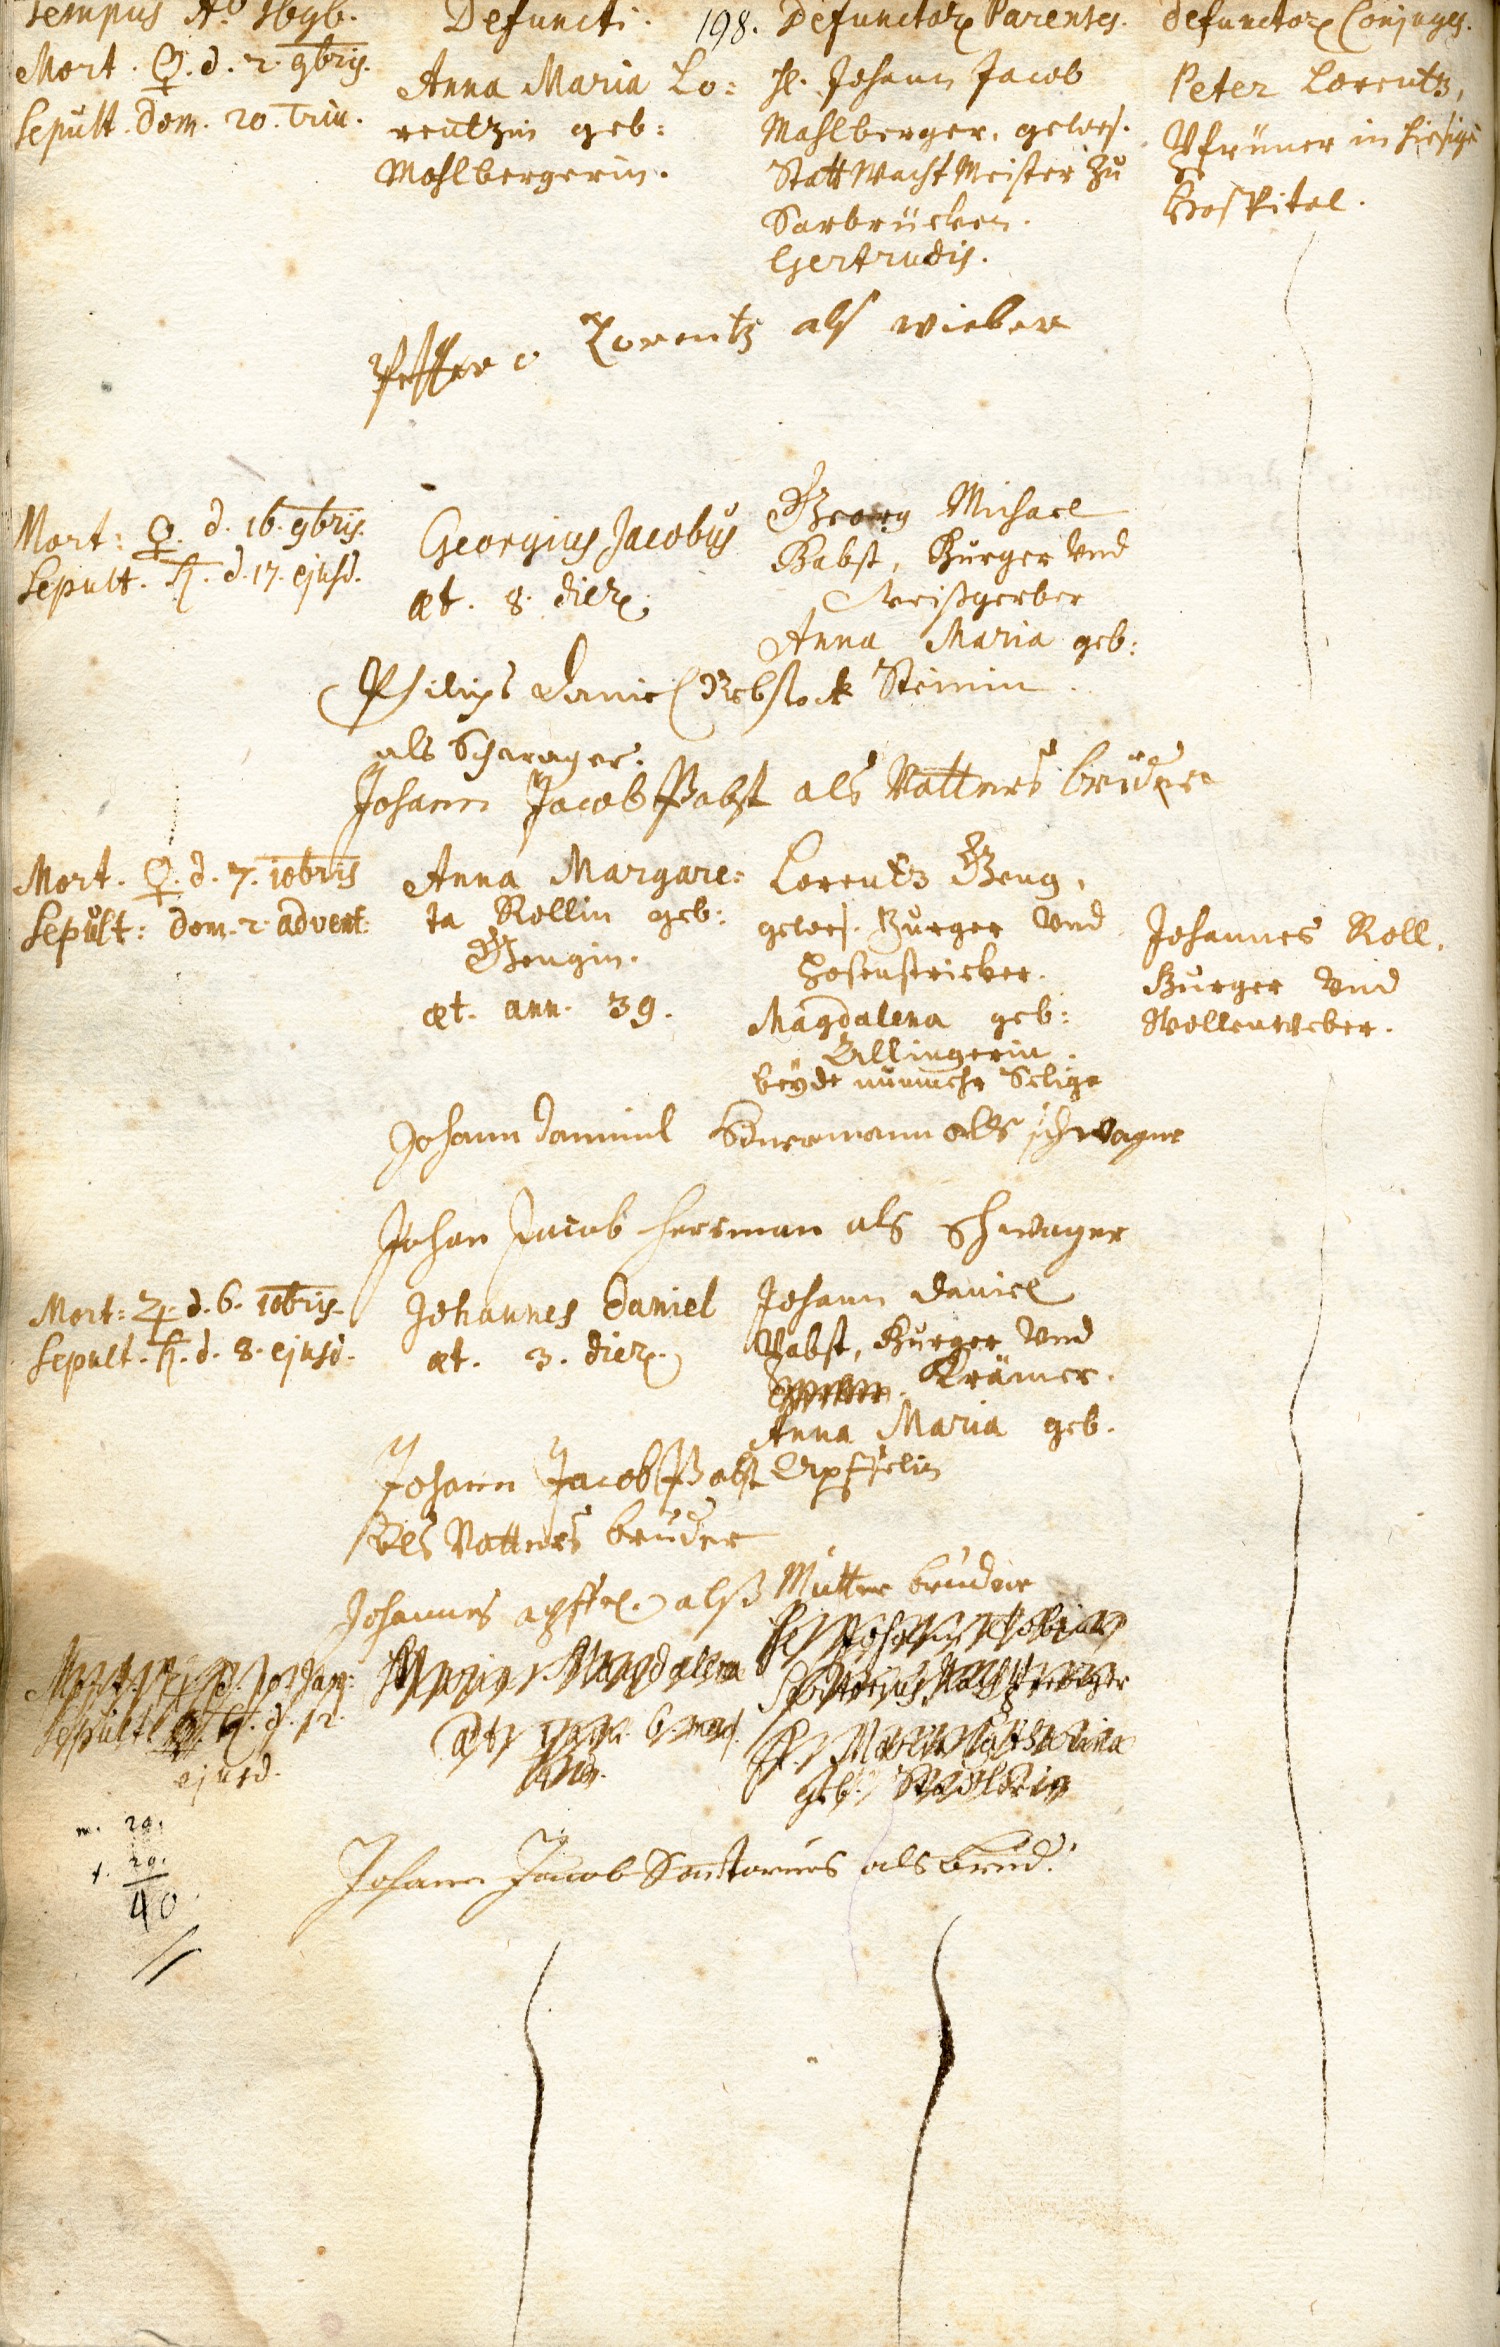 Tempus Aô 1696.
Defuncti.
198.
Defunctorꝝ Parentes.
Defunctorꝝ Conjuges.
Mort. ♀. d. 2. 9bris.
Sepult. Dom. 20. Trin.
Anna Maria Lo=
rentzin geb:
Mahlbergerin.
H. Johann Jacob
Mahlberger, gewes.
Statt Wacht Meister zu
Sarbrücken.
Gertrudis.
Peter Lorentz,
Pfrüner in hiesige
Hospital.
Lorentz als wieber
Mort: ♀. d. 16. 9bris.
Sepult. ♄. d. 17. ejusd.
Georgius Jacobus
æt. 8. dierꝝ.
Georg Michael
Babst, Burger Vnd
Weißgerber
Anna Maria geb:
Steinin.
Philips Daniel Rebstock
als Schwager.
Johann Jacob Pabst als Vatters bruder
Mort. ♀. d. 7. 10bris
Sepult: Dom. 2. advent:
Anna Margare=
ta Rollin geb:
Gengin.
æt. ann. 39.
Lorentz Geng,
gewes. Burger Vnd
Hosenstricker.
Magdalena geb:
Ollingerin.
beyde nunmehr Selige
Johannes Roll,
Burger Vnd
Wollenweber.
Johann Danniel als schwager
Johan Jacob Herman als Schwager
Mort: ♃. d. 6. 10bris.
Sepult. ♄. d. 8. ejusd.
Johannes Daniel
æt. 3. dierꝝ.
Johann Daniel
Pabst, Burger Vnd
Krämer.
Anna Maria geb.
Apffelin
Johann Jacob Pabst
Als Vatters bruder
Johannes apffel. alß Mutter bruder
Maria Magdalena
6. mens.
ejusd.
geb.
m. 20.
f. 20.
40
Johann Jacob Santorius als brud.